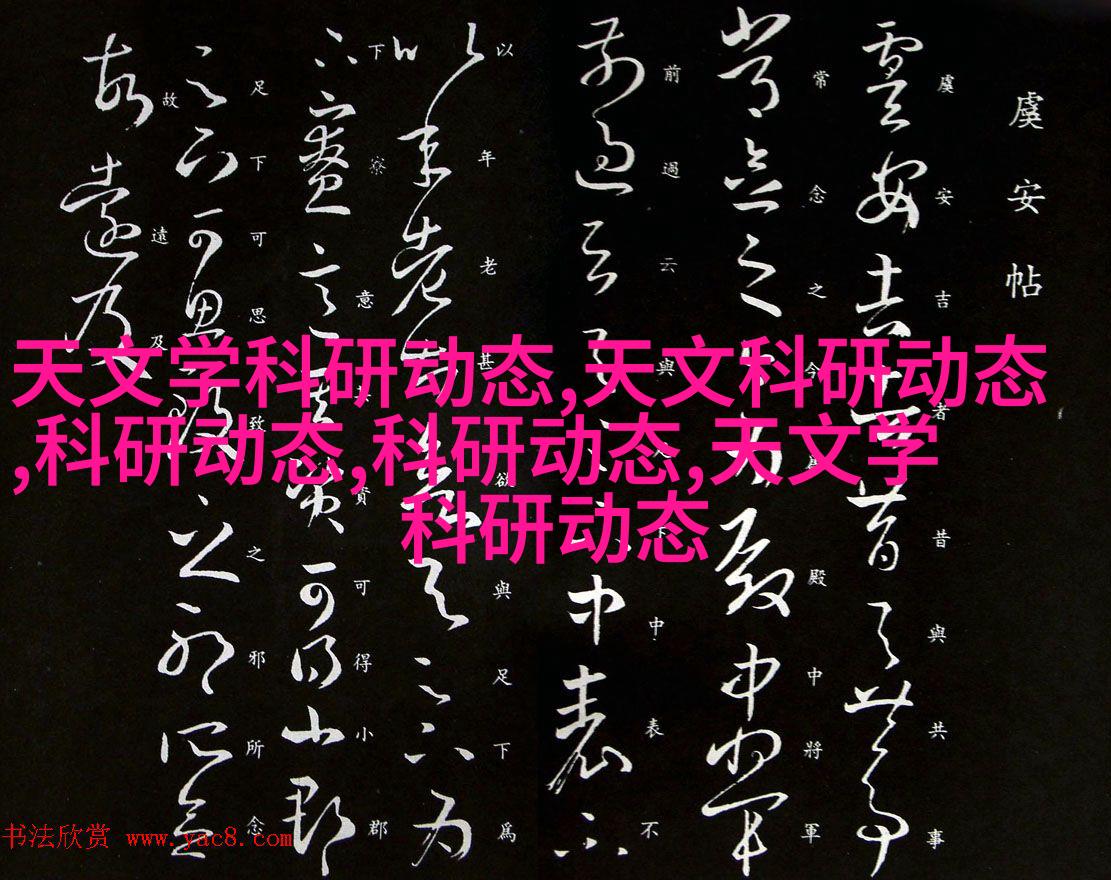 虞安帖
虞安吉者昔與共事
常念之今爲殿中將軍
前過云與足下中表不
以年老甚欲與足下爲
下寮意其資可得小郡
足下可思致之邪所念
故遠及
天文学科研动态,天文科研动态
,科研动态,科研动态,天文学
科研动态
书法欣赏 www.yac8.com